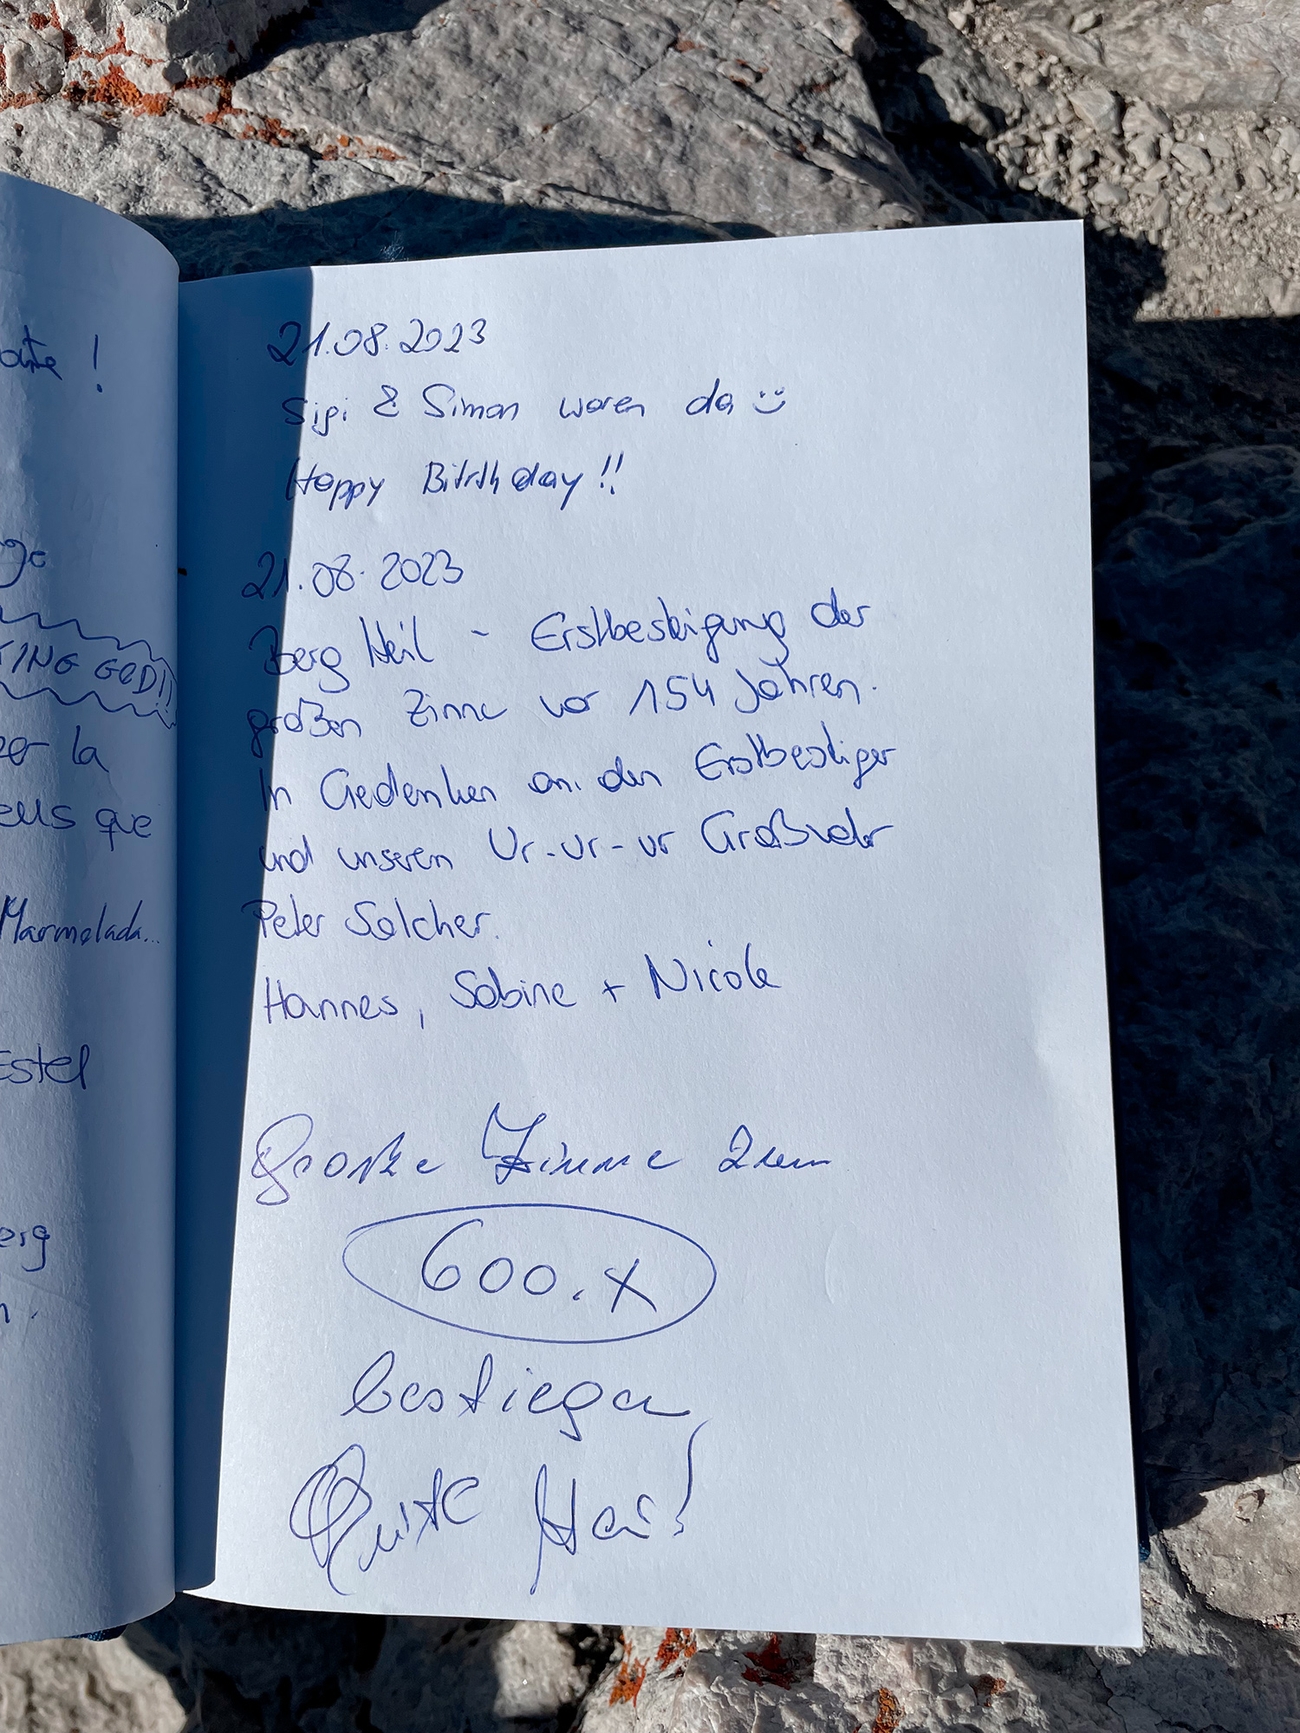 ge
KING GEDI!
la
que
Marmolada...
Estel
erg
21.08.2023
Sigi & Simon waren da
Happy Birthday!!
21.08.2023
Berg Heil - Erstbesteigung der
großen Zinne vor 154 Jahren.
In Gedenken an den Erstbesteiger
und unseren Ur-ur-ur Großvater
Peter Salcher.
Hannes, Sabine + Nicole
Große Zinne zum
600.x
bestiegen